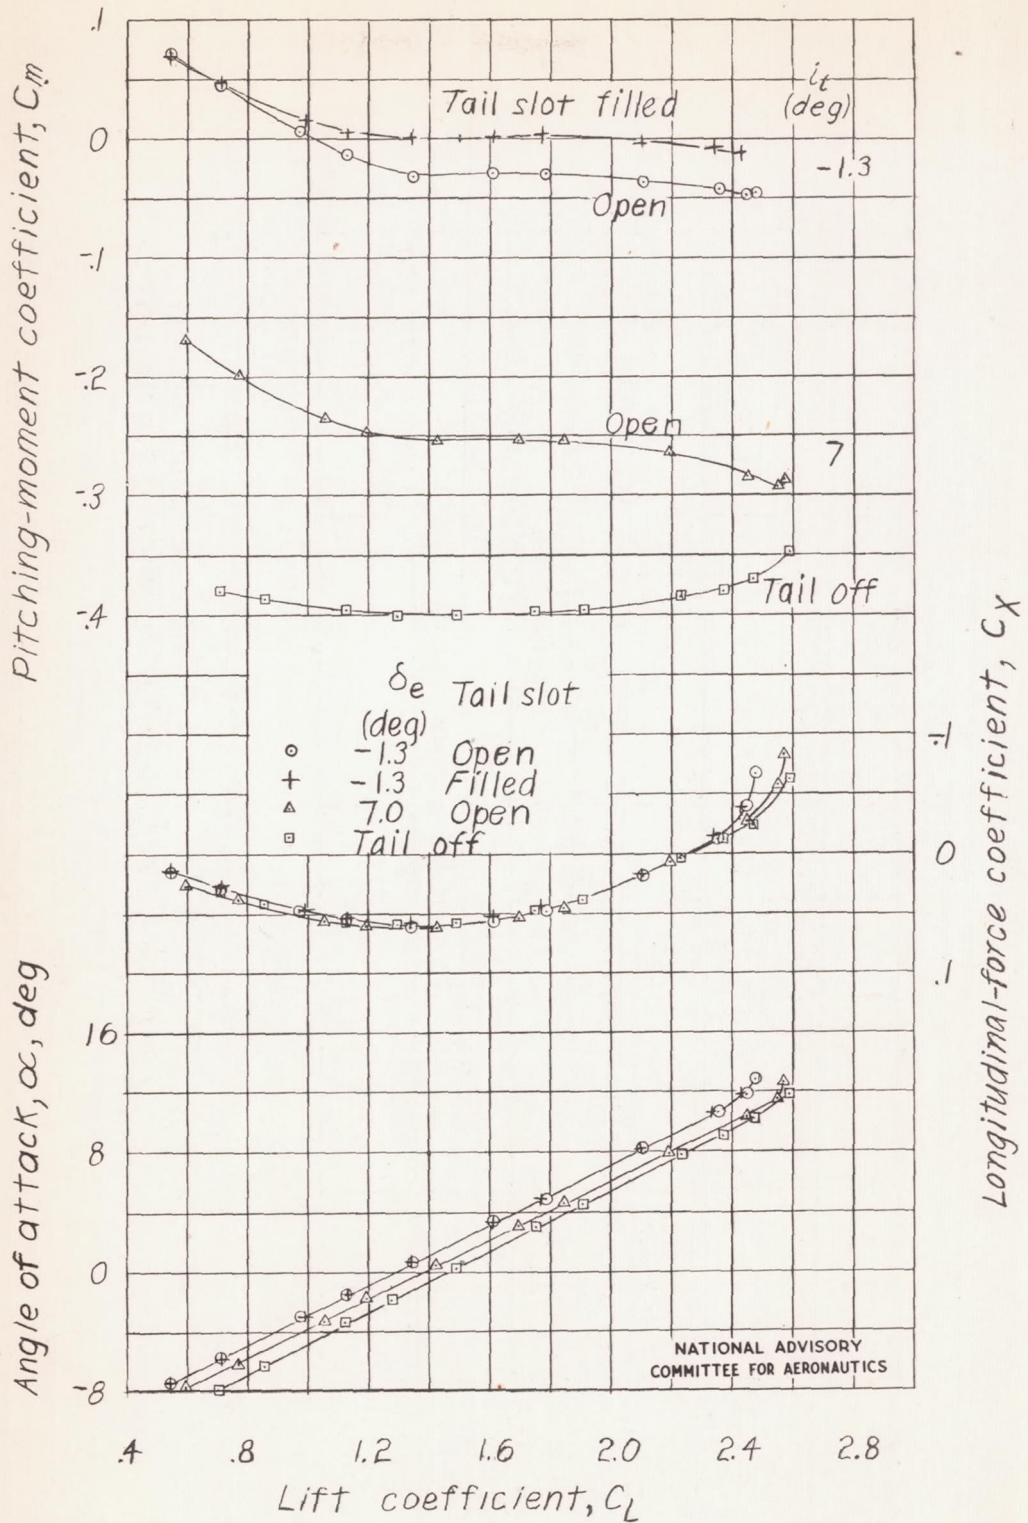 Pitching-moment coefficient, Cm
.1
0
-.1
-.2
-.3
-.4
Tail slot filled
it
(deg)
-1.3
Open
Open
7
Tail off
δe Tail slot
(deg)
-1.3 Open
-1.3 Filled
7.0 Open
Tail off
-.1
0
.1
Longitudinal-force coefficient, CX
Angle of attack, α, deg
16
8
0
-8
NATIONAL ADVISORY
COMMITTEE FOR AERONAUTICS
.4 .8 1.2 1.6 2.0 2.4 2.8
Lift coefficient, CL